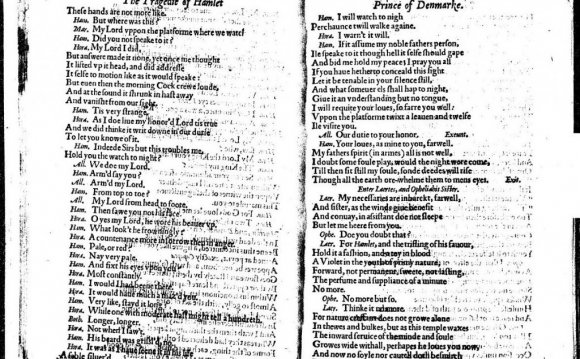 The Tragedie of Hamlet
These hands are not more like.
Ham. But where was this?
Mar. My Lord vppon the platforme where we watcht
Ham. Did you not speake to it?
Hora. My Lord I did,
But answere made it none, yet once me thought
It lifted vp it head, and did addresse
It selfe to motion like as it would speake:
But euen then the morning Cock crewe loude,
And at the sound it shrunk in hast away
And vanisht from our sight.
Ham. Tis very strange.
Hora. As I doe liue my honor'd Lord tis true
And we did thinke it writ downe in our dutie
To let you knowe of it.
Ham. Indeede Sirs but this troubles me,
Hold you the watch to night?
All. We doe my Lord.
Ham. Arm'd say you?
All. Arm'd my Lord.
Ham. From top to toe?
All. My Lord from head to foote.
Ham. Then sawe you not his face.
Hora. O yes my Lord, he wore his beauer vp.
Ham. What look't he frowningly?
Hora. A countenance more in sorrow then in anger.
Ham. Pale, or red?
Hora. Nay very pale.
Ham. And fixt his eyes vpon you?
Hora. Most constantly.
Ham. I would I had beene there.
Hora. It would haue much a maz'd you.
Ham. Very like, stayd it long?
Hora. While one with moderate hast might tell a hundreth.
Both. Longer, longer.
Hora. Not when I saw't.
Ham. His beard was grissl'd, no.
Hora. It was as I haue seene it in his life
A sable siluer'd
Prince of Denmarke.
Ham. I will watch to nigh
Perchaunce twill walke againe.
Hora. I warn't it will.
Ham. If it assume my noble fathers person,
Ile speake to it though hell it selfe should gape
And bid me hold my peace; I pray you all
If you haue hetherto conceald this sight
Let it be tenable in your silence still,
And what someuer els shall hap to night,
Giue it an vnderstanding but no tongue,
I will requite your loues, so farre you well:
Vppon the platforme twixt a leauen and twelfe
Ile visite you.
All. Our dutie to your honor. Exeunt.
Ham. Your loues, as mine to you, farwell.
My fathers spirit (in armes) all is not well,
I doubt some foule play, would the night were come,
Till then sit still my soule, fonde deedes will rise
Though all the earth ore-whelme them to mens eyes. Exit.
Enter Laertes, and Ophelia his Sister.
Laer. My necessaries are inbarckt, farwell,
And sister, as the winds giue benefit
And conuay, in assistant doe not sleepe
But let me heere from you.
Ophe. Doe you doubt that?
Laer. For Hamlet, and the trifling of his fauour,
Hold it a fashion, and a toy in blood
A Violet in the youth of primy nature,
Forward, not permanent, sweete, not lasting,
The perfume and suppliance of a minute
No more.
Ophe. No more but so.
Laer. Thinke it no more.
For nature cressant does not growe alone
In thewes and bulkes, but as this temple waxes
The inward seruice of the minde and soule
Growes wide withall, perhapes he loues you now,
And now no soyle nor cautell doth besmirch